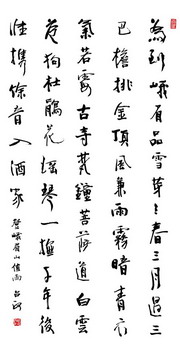 為到峨眉品雪芽々春三月過三
巴檐挑金頂風兼雨霧暗青衣
氣若霞古寺梵鐘菩薩道白雲
蒼狗杜鵑花瑤琴一撫千年後
誰攜餘音入酒家
登峨眉山值雨